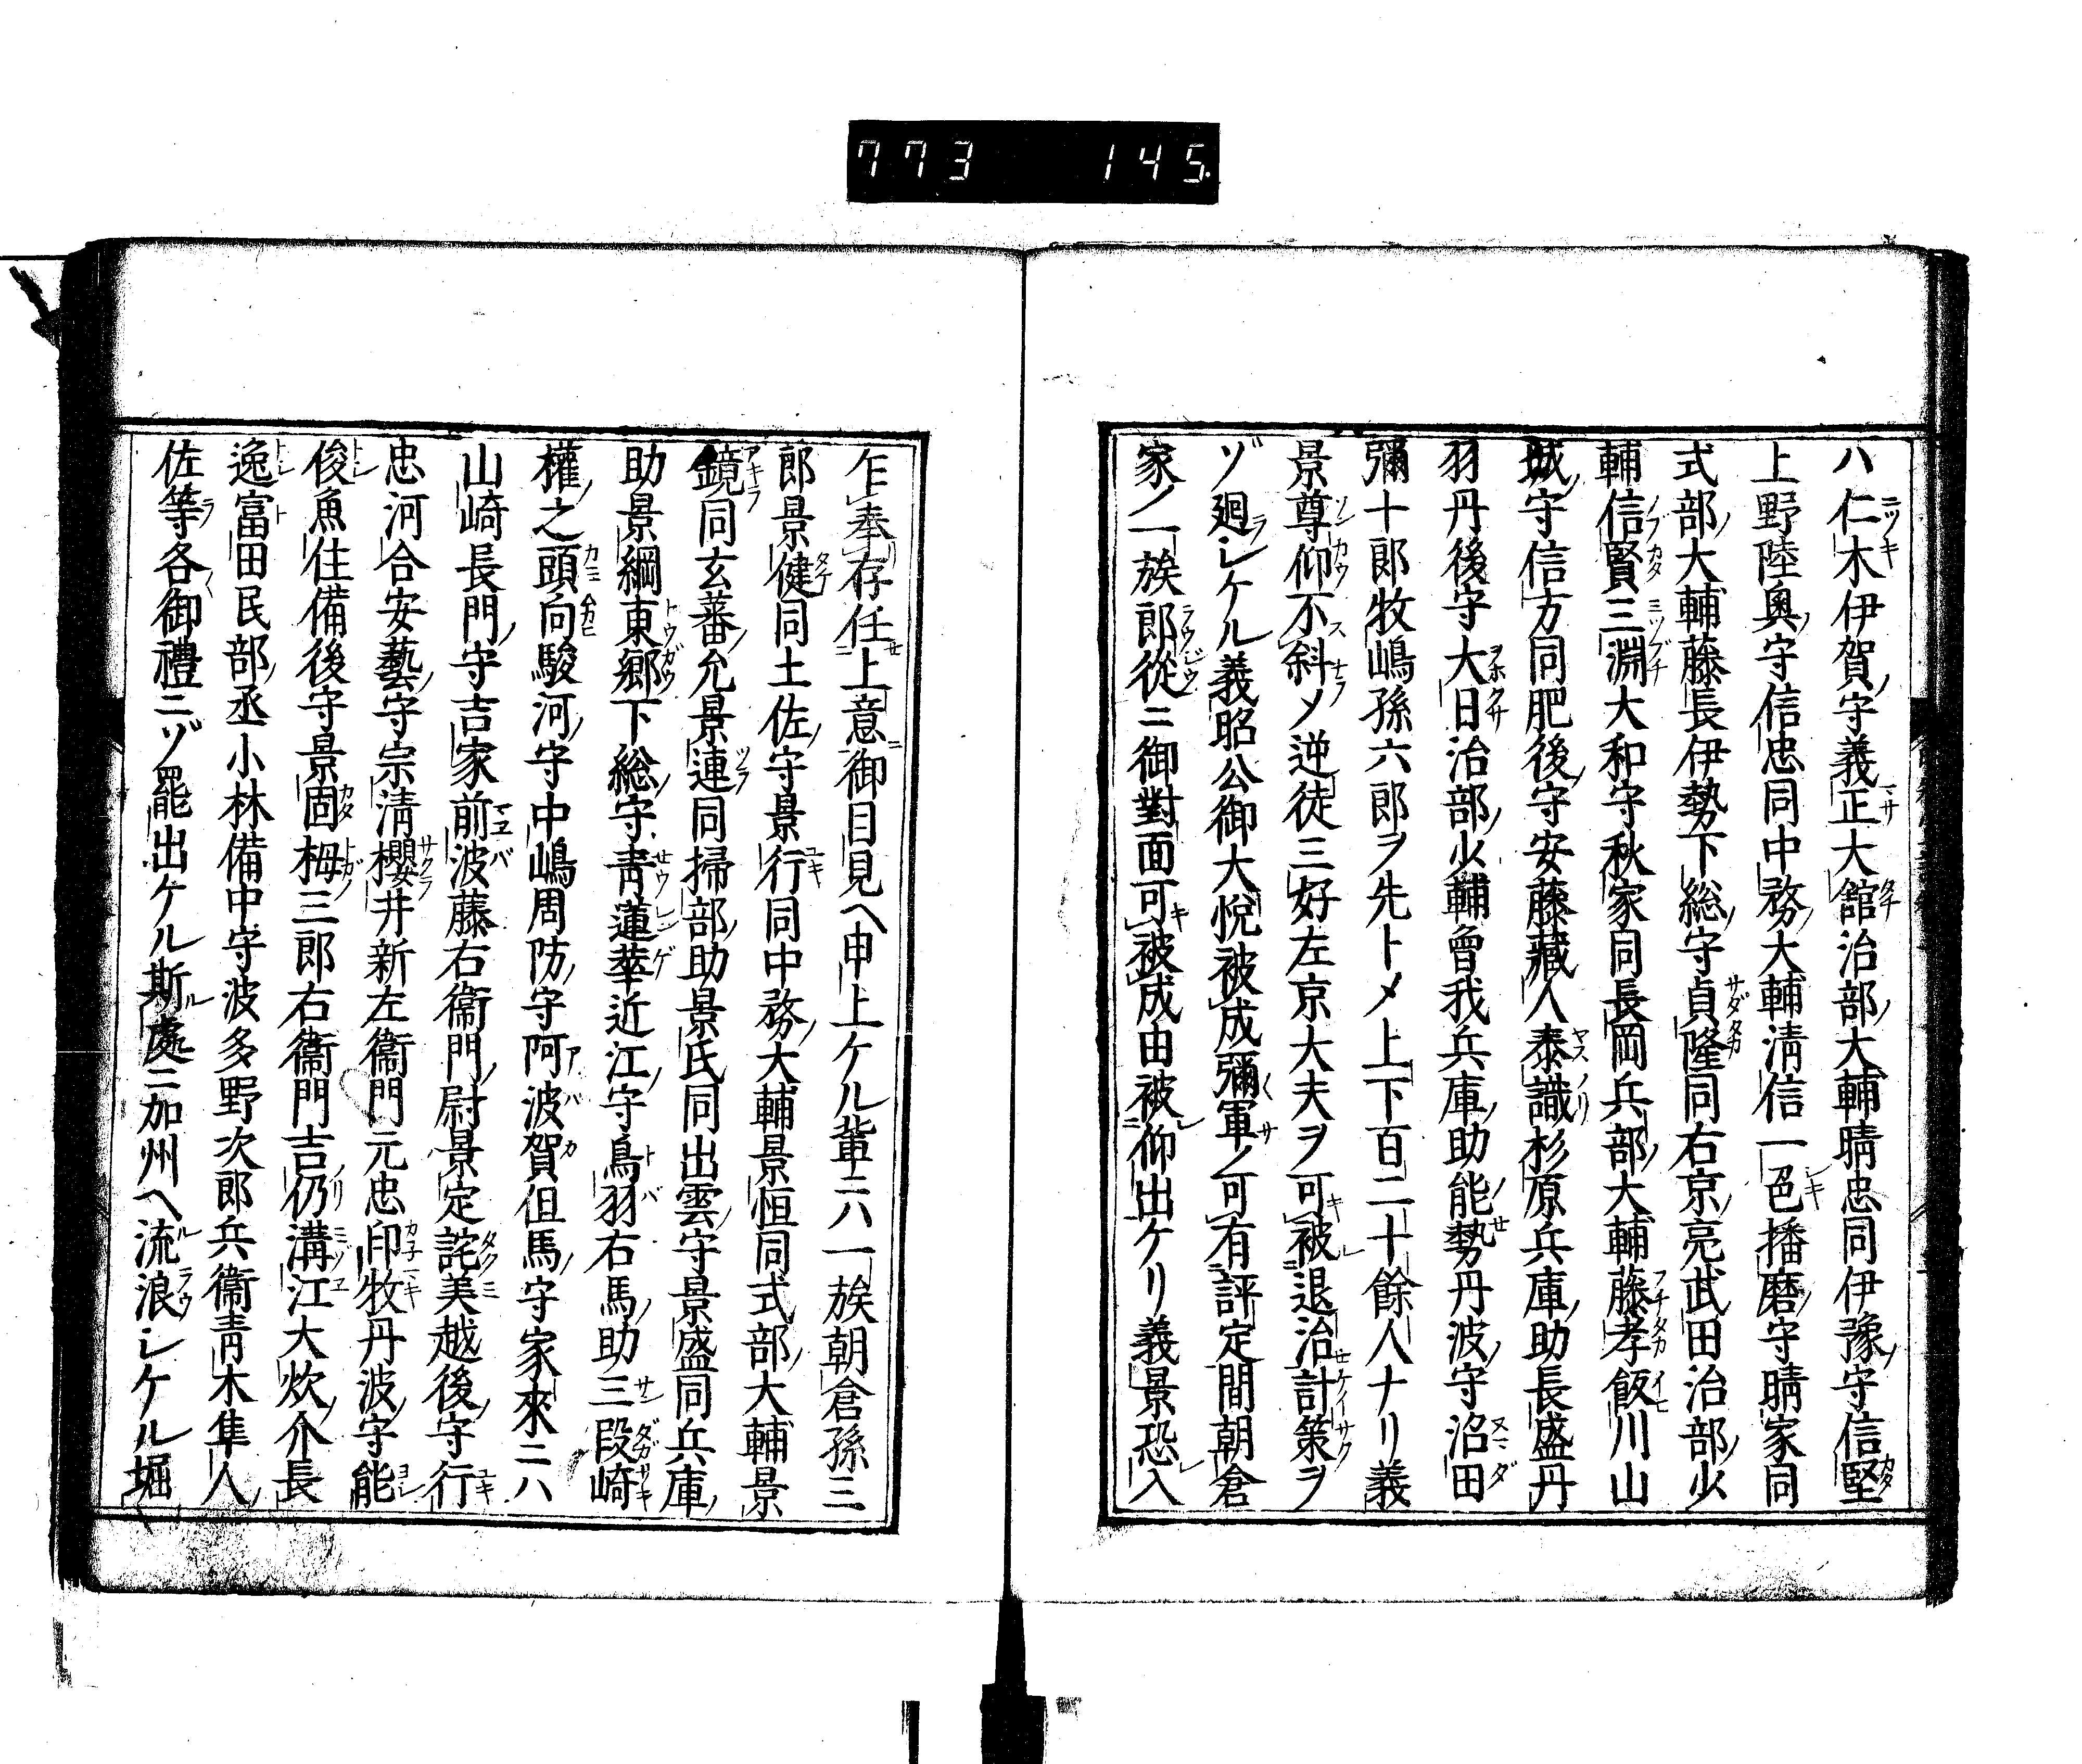 773 145
ハ仁木伊賀守義正大館治部大輔晴忠同伊豫守信堅
上野陸奥守信忠同中務大輔清信一色播磨守晴家同
式部大輔藤長伊勢下総守貞隆同右京亮武田治部少
輔信賢三淵大和守秋家同長岡兵部大輔藤孝飯川山
城守信方同肥後守安藤蔵人泰識杉原兵庫助長盛丹
羽丹後守大日治部少輔曾我兵庫助能勢丹波守沼田
彌十郎牧嶋孫六郎ヲ先トメ上下百二十餘人ナリ義
景尊仰不斜メ逆徒三好左京大夫ヲ可被退治計策ヲ
ゾ廻シケル義昭公御大悦被成彌軍ノ可有評定間朝倉
家ノ一族郎從ニ御對面可被成由被仰出ケリ義景恐入
乍奉存任上意御目見ヘ申上ケル輩ニハ一族朝倉孫三
郎景健同土佐守景行同中務大輔景恒同式部大輔景
鏡同玄蕃允景連同掃部助景氏同出雲守景盛同兵庫
助景綱東郷下総守青蓮華近江守鳥羽右馬助三段崎
權之頭向駿河守中嶋周防守阿波賀但馬守家來ニハ
山崎長門守吉家前波藤右衞門尉景定詫美越後守行
忠河合安藝守宗清櫻井新左衞門元忠印牧丹波守能
俊魚住備後守景固栂三郎右衞門吉仍溝江大炊介長
逸富田民部丞小林備中守波多野次郎兵衞青木隼人
佐等各御禮ニゾ罷出ケル斯處ニ加州ヘ流浪シケル堀